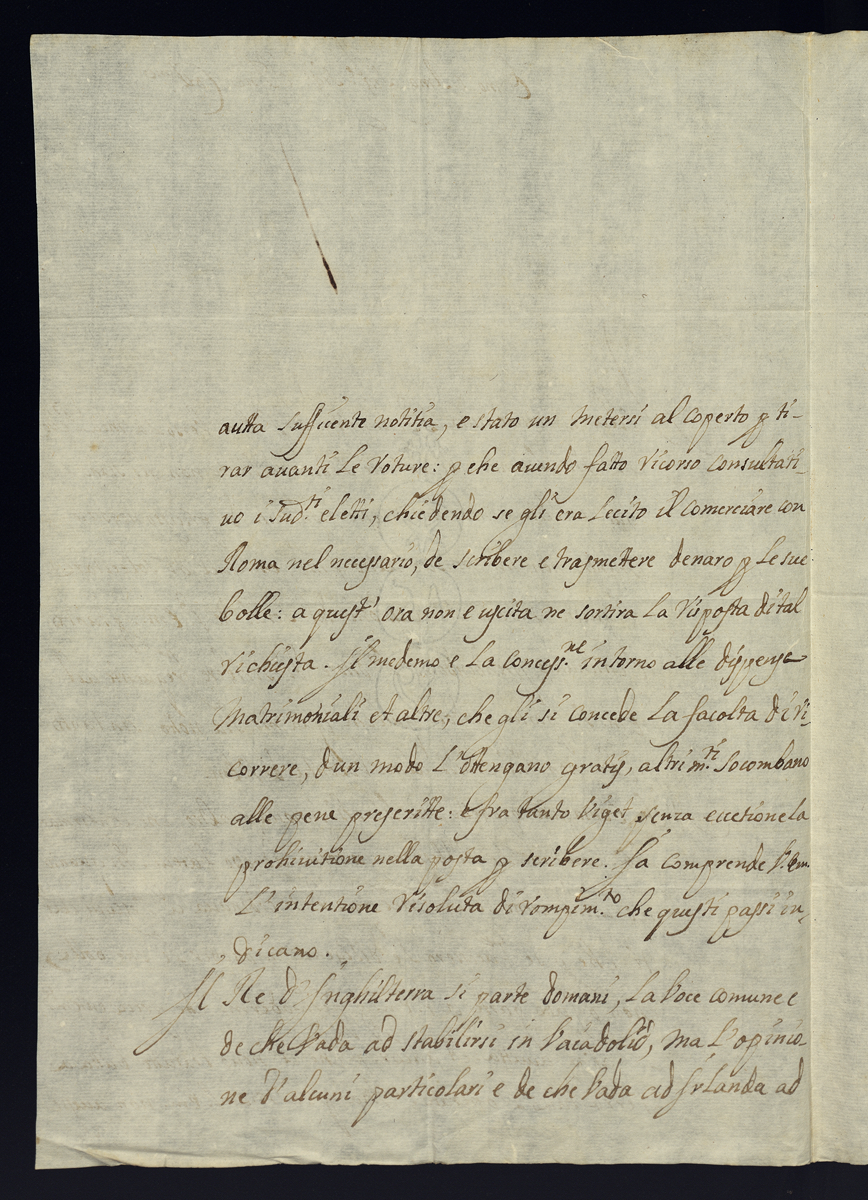 autta sufficente notitia, e stato un metersi al coperto p ti-
rar auanti le voture: p che auendo fatto ricorso consultati-
uo i sud.ti eletti, chiedendo se gli era lecito il comerciare con
Roma nel necessario, de scribere e trasmettere denaro p le sue
bolle: a quest' ora non e uscita ne sortira la risposta di tal
richiesta. Il medemo e la concess.ne intorno alle dispense
Matrimoniali et altre, che gli si concede la facolta di ri-
correre, d un modo l'ottengano gratis, altrim.ti socombano
alle pene prescritte: e fra tanto viget senza eccetione la
prohivitione nella posta p scribere. Sa comprende V. Em.
L'intentione risoluta di rompim.to che questi passi in-
dicano.
Il Re d'Inghilterra si parte domani, la voce comune e
de che vada ad stabilirsi in Vaiadolid, ma l'opinio-
ne d'alcuni particolari e de che vada ad Irlanda ad